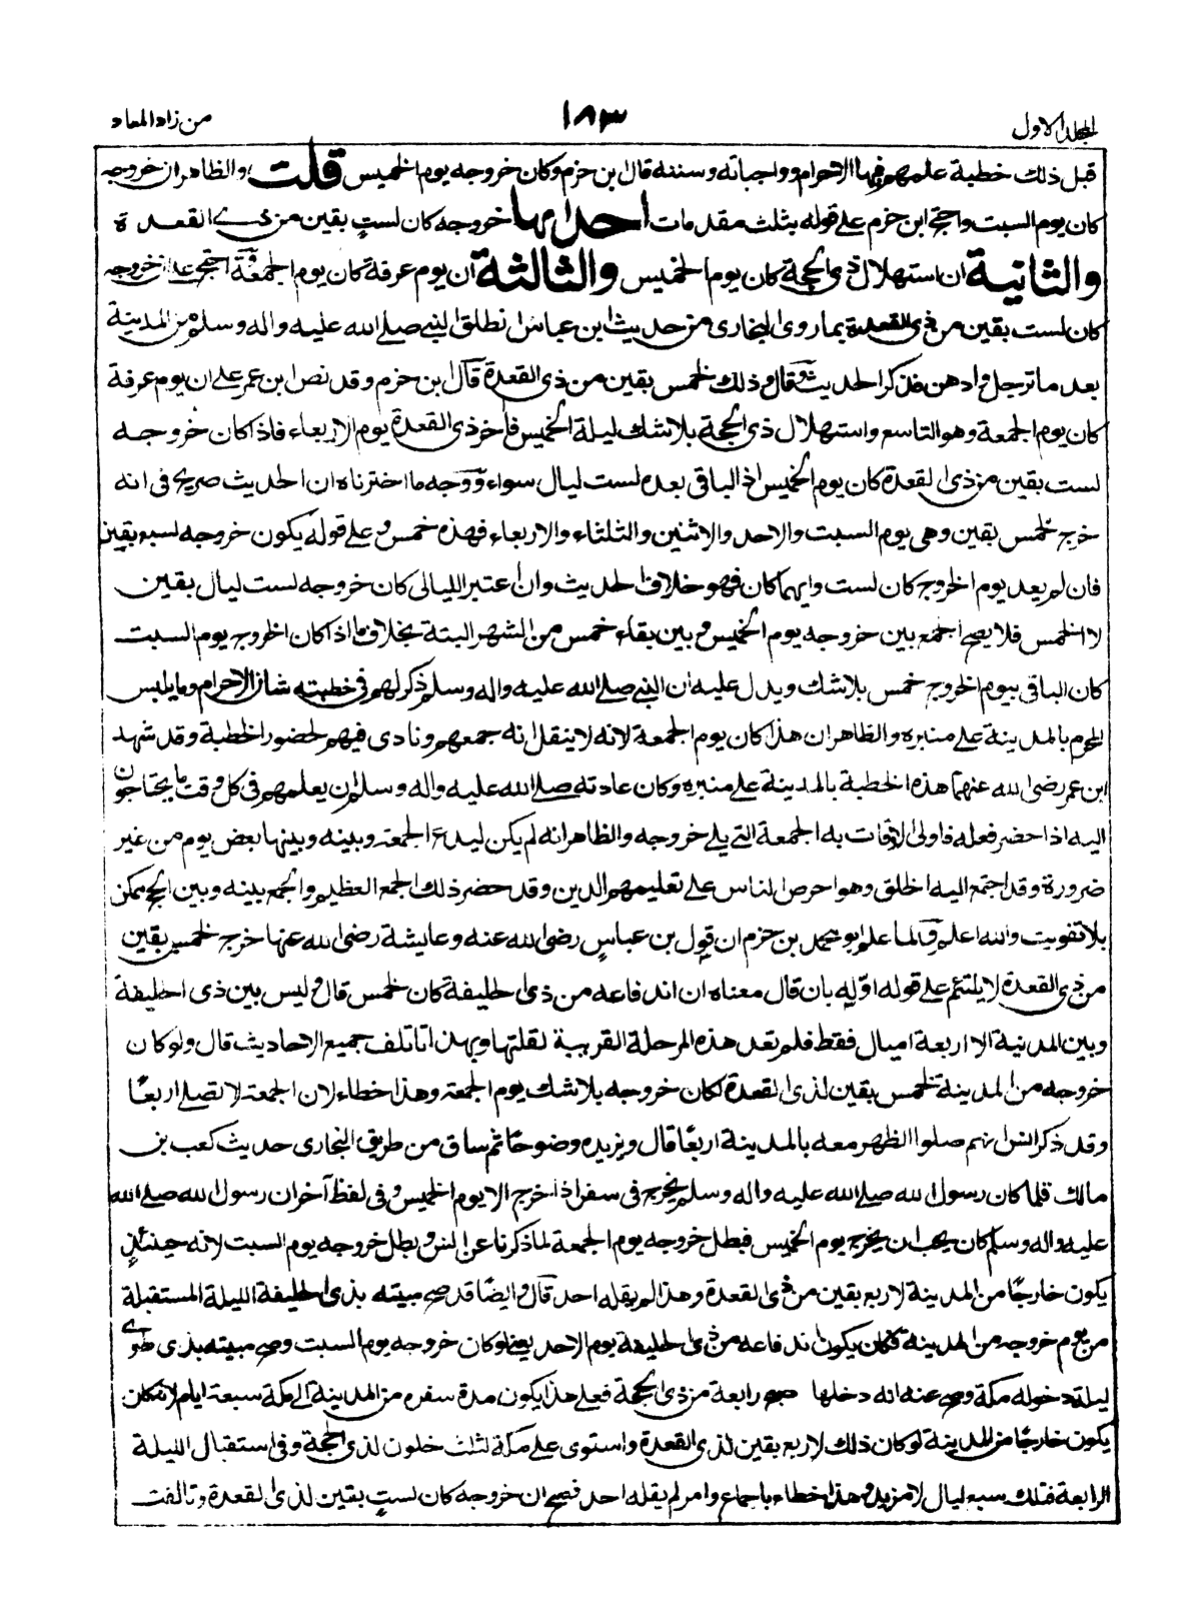 المجلد الاول
١٨٣
من زاد المعاد
قبل ذلك خطبة علمهم فيها الاحرام وواجباته وسننه قال بن حزم وكان خروجه يوم الخميس قلت والظاهر ان خروجه
كان يوم السبت واحتج ابن حزم على قوله بثلث مقدمات احدا مها خروجه كان لست بقين من ذى القعدة
والثانية ان استهلال ذى الحجة كان يوم الخميس والثالثة ان يوم عرفة كان يوم الجمعة واحتج على ان خروجه
كان لست بقين من ذى القعدة بما روى البخارى من حديث ابن عباس انطلق النبى صلے الله عليه واله وسلم من المدينة
بعد ما ترجل وادهن فذكر الحديث وقال وذلك لخمس بقين من ذى القعدة قال ابن حزم وقد نص ابن عمر على ان يوم عرفة
كان يوم الجمعة وهو التاسع واستهلال ذى الحجة بلا شك ليلة الخميس فاخر ذى القعدة يوم الاربعاء فاذا كان خروجه
لست بقين من ذى القعدة كان يوم الخميس اذ الباقى بعده لست ليال سواء ووجه ما اخترناه ان الحديث صريح فى انه
خرج لخمس بقين وهى يوم السبت والاحد والاثنين والثلثاء والاربعاء فهذه خمس وعلى قوله يكون خروجه لسبع بقين
فان لم يعد يوم الخروج كان لست وايهما كان فهو خلاف الحديث وان اعتبر الليالى كان خروجه لست ليال بقين
لا الخمس فلا يصح الجمع بين خروجه يوم الخميس وبين بقاء خمس من الشهر البتة بخلاف ما اذا كان الخروج يوم السبت
كان الباقى بيوم الخروج خمس بلا شك ويدل عليه ان النبى صلے الله عليه واله وسلم ذكر لهم فى خطبته شان الاحرام وما يلبس
المحرم بالمدينة على منبره والظاهر ان هذا كان يوم الجمعة لانه لا ينقل انه جمعهم ونادى فيهم لحضور الخطبة وقد شهد
ابن عمر رضى الله عنهما هذه الخطبة بالمدينة على منبره وكان عادته صلے الله عليه واله وسلم ان يعلمهم فى كل وقت ما يحتاجون
اليه اذا حضر فعله فاولى الاوقات به الجمعة التى يلے خروجه والظاهر انه لم يكن ليدع الجمعة وبينه وبينها بعض يوم من غير
ضرورة وقد اجتمع اليه الخلق وهو احرص الناس على تعليمهم الدين وقد حضر ذلك الجمع العظيم والجمع بينه وبين الحج ممكن
بلا تفويت والله اعلم ولما علم ابو محمد بن حزم ان قول بن عباس رضى الله عنه وعايشة رضى الله عنها خرج لخمس بقين
من ذى القعدة لا يلتئم على قوله اوّله بان قال معناه ان اندفاعه من ذى الحليفة كان لخمس قال وليس بين ذى الحليفة
وبين المدينة الا اربعة اميال فقط فلم تعد هذه المرحلة القريبة لقلتها وبهذا تاتلف جميع الاحاديث قال ولو كان
خروجه من المدينة لخمس بقين لذى القعدة لكان خروجه بلا شك يوم الجمعة وهذا خطاء لان الجمعة لا تصلے اربعًا
وقد ذكر انس انهم صلوا الظهر معه بالمدينة اربعًا قال ويزيده وضوحًا ثم ساق من طريق البخارى حديث كعب بن
مالك قلما كان رسول الله صلے الله عليه واله وسلم يخرج فى سفر اذا خرج الا يوم الخميس وفى لفظ آخر ان رسول الله صلے الله
عليه واله وسلم كان يحب ان يخرج يوم الخميس فبطل خروجه يوم الجمعة لما ذكرنا عن انس وبطل خروجه يوم السبت لانه حينئذٍ
يكون خارجًا من المدينة لاربع بقين من ذى القعدة وهذا لم يقله احد قال وايضًا قد صح مبيته بذى الحليفة الليلة المستقبلة
من يوم خروجه من المدينة فكان يكون اندفاعه من ذى الحليفة يوم الاحد يعنى لو كان خروجه يوم السبت وصح مبيته بذى طوى
ليلة دخوله مكة وصح عنه انه دخلها صبح رابعة من ذى الحجة فعلى هذا يكون مدة سفره من المدينة الى مكة سبعة ايام لانه كان
يكون خارجًا من المدينة لو كان ذلك لاربع بقين لذى القعدة واستوى على مكة لثلث خلون لذى الحجة وفى استقبال الليلة
الرابعة فتلك سبع ليال لا مزيد وهذا خطاء باجماع وامر لم يقله احد فصح ان خروجه كان لست بقين لذى القعدة وتالفت